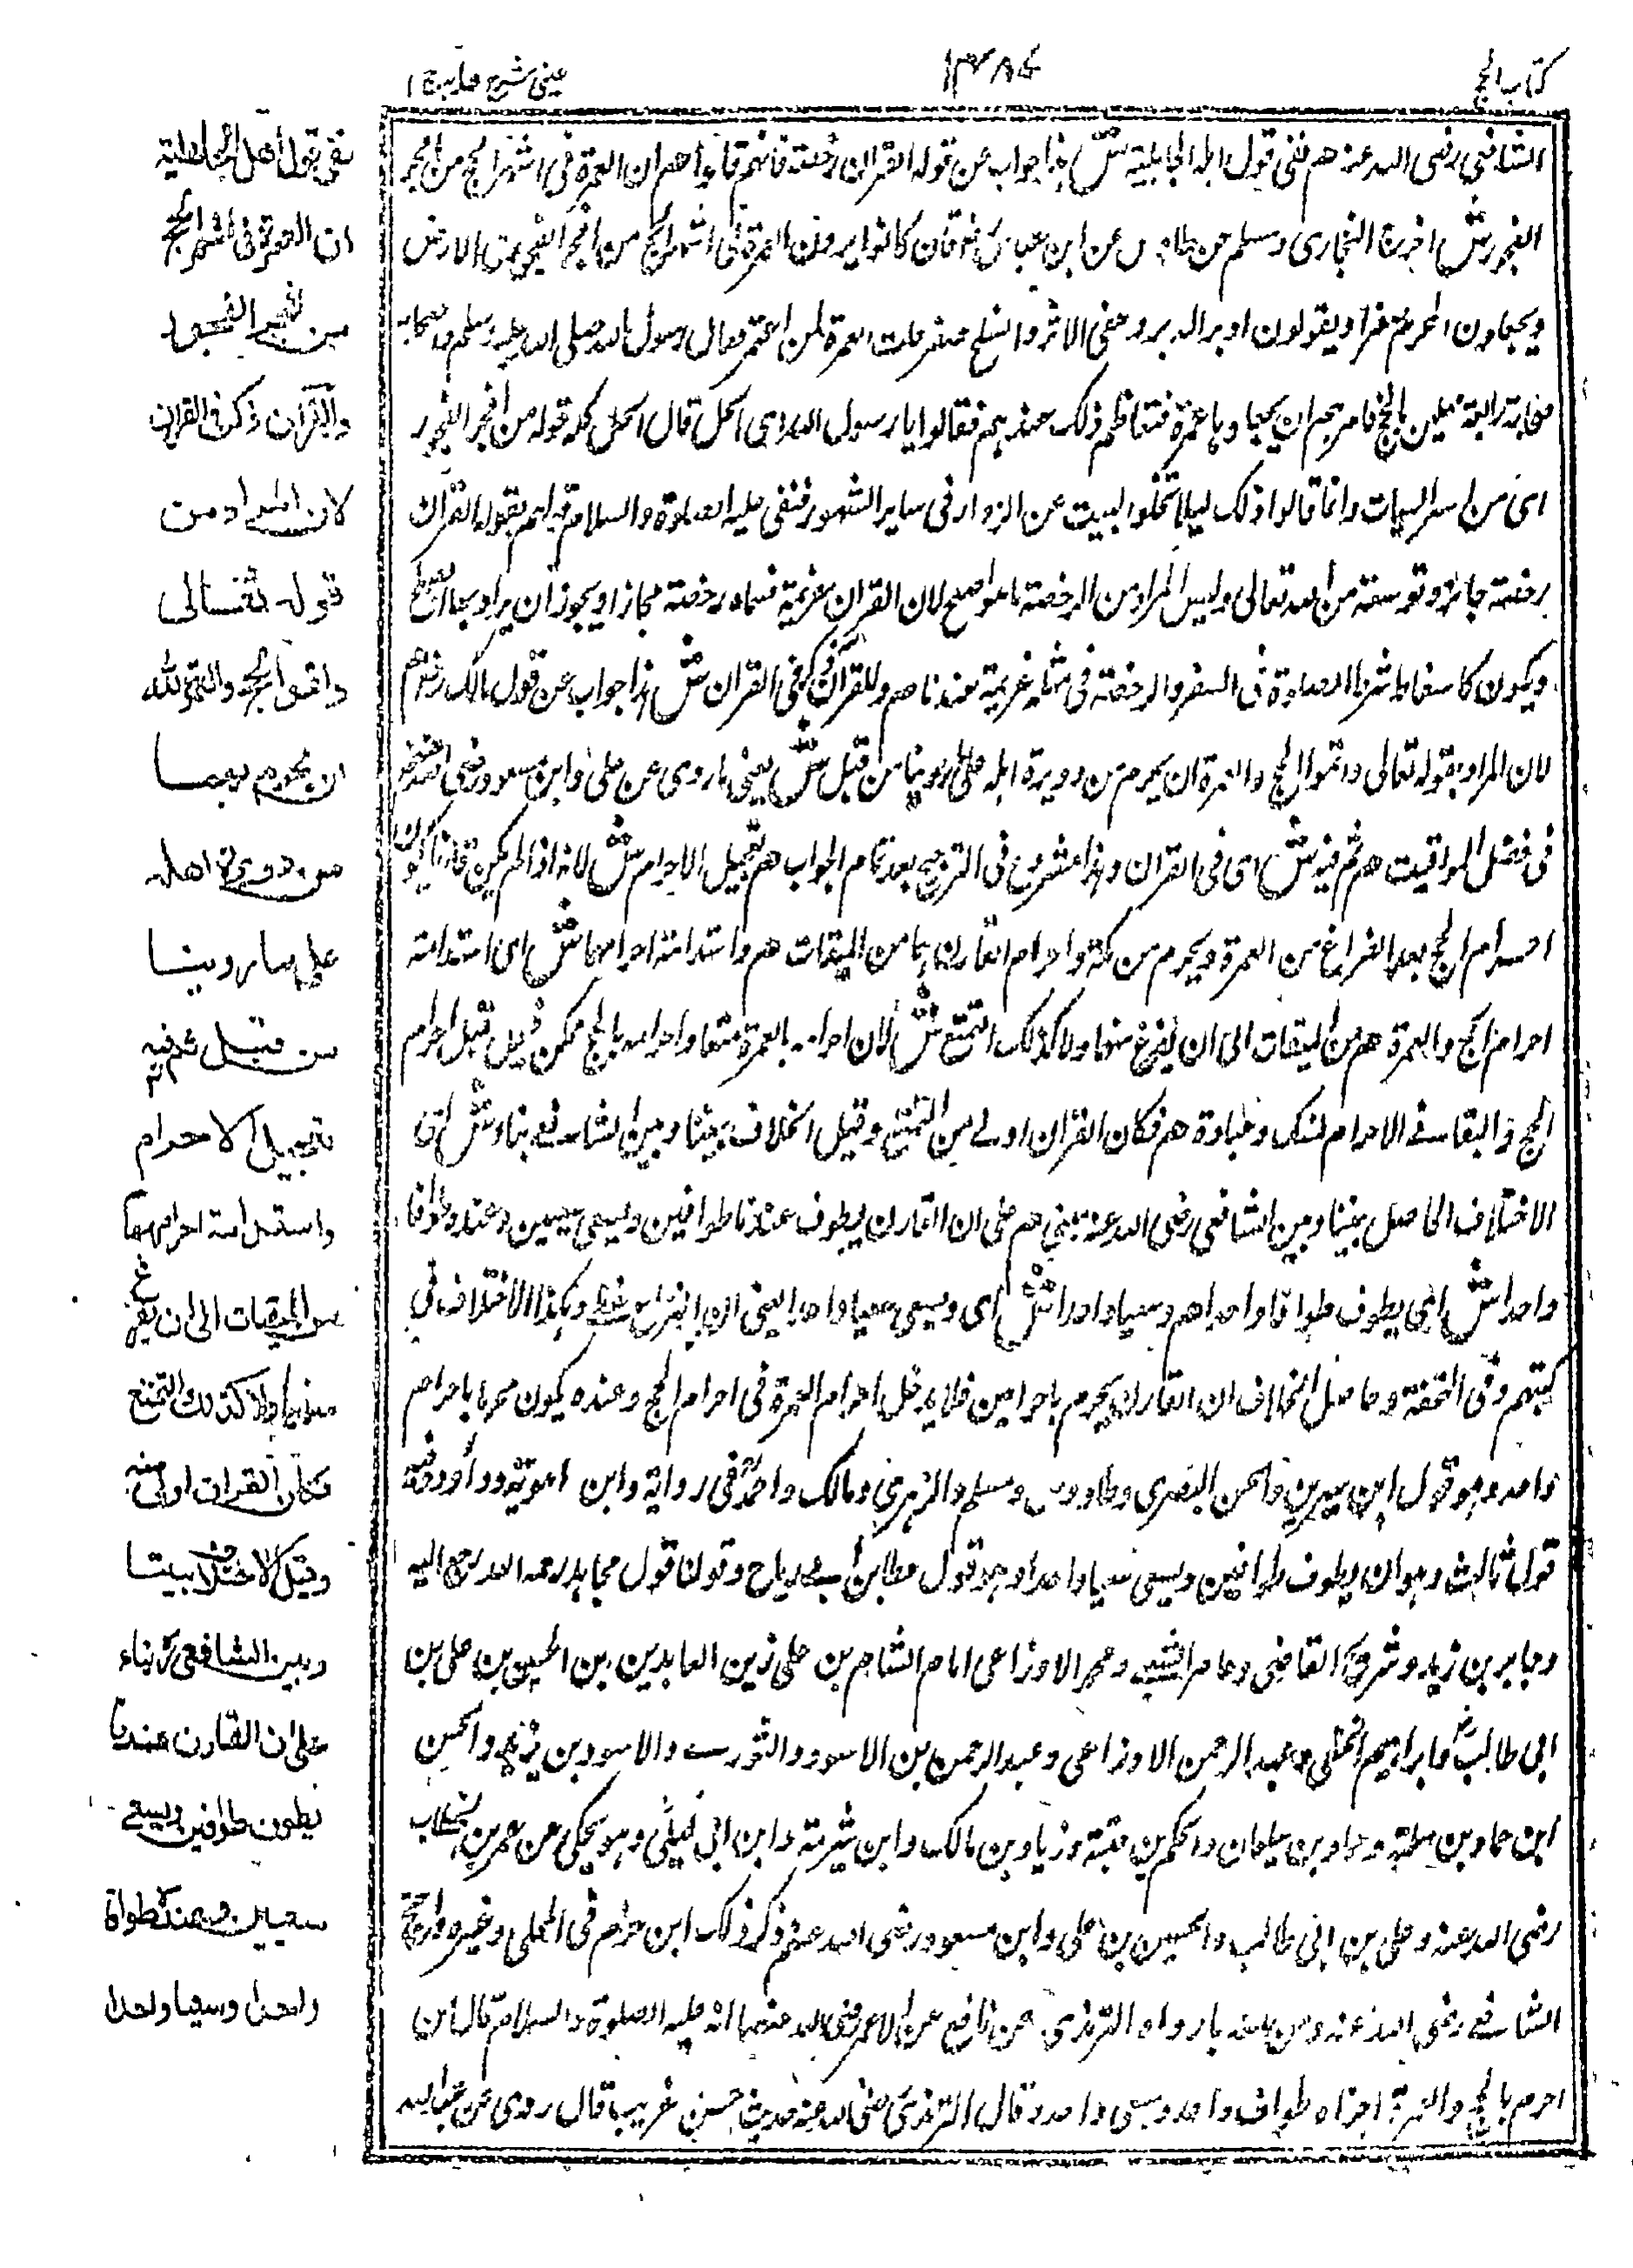 كتاب الحج
١٣٨٤
عينى شرح هداية ج ١
الشافعي رضى الله عنه هم نفى قول اهل الجاهلية ش هذا جواب عن قوله القران رخصة فانهم قالوا هم ان العمرة فى اشهر الحج من افجر
الفجور ش اخرج البخارى ومسلم عن طاوس عن ابن عباس رض قال كانوا يرون العمرة فى اشهر الحج من افجر الفجور فى الارض
ويجعلون المحرم صفرا ويقولون اذا برأ الدبر وعفى الاثر وانسلخ صفر حلت العمرة لمن اعتمر فقال رسول الله صلى الله عليه وسلم واصحابه
صبيحة رابعة مهلين بالحج فامرهم ان يجعلوها عمرة فتعاظم ذلك عندهم فقالوا يا رسول الله اى الحل قال الحل كله قوله من افجر الفجور
اى من اسوأ السيات وانما قالوا ذلك ليلا تخلو البيت عن الزوار فى ساير الشهور فنفى عليه الصلوة والسلام قولهم بقوله القران
رخصة جائزة وتوسعة من الله تعالى وليس المراد من الرخصة ما هو اصطلح لان القران عزيمة فسماه رخصة مجازا ويجوز ان يراد بها
ويكون كاسقاط شطر الصلوة فى السفر والرخصة فى مثله عزيمة عندنا هم وللقران ذكر فى القران ش هذا جواب عن قول مالك رض هم
لان المراد بقوله تعالى واتموا الحج والعمرة ان يحرم من دويرة اهله على ما روينا من قبل ش يعنى ما روى عن على وابن مسعود رضى الله عنهم
فى فصل المواقيت هم ثم فيه ش اى فى القران وهذا مشروع فى الترجيح بعد تمام الجواب هم تعجيل الاحرام ش لانه اذا لم يكن قارنا يكون
احرام الحج بعد الفراغ من العمرة ويحرم من مكة واحرام القارن بهما من الميقات هم واستدامة احرامهما ش اى استدامة
احرام الحج والعمرة هم من الميقات الى ان يفرغ منهما ولا كذلك التمتع ش لان احرامه بالعمرة منها واحرامه بالحج ممكن قبل احرام
الحج والبقاء فى الاحرام نسك وعبادة هم فكان القران اولى من التمتع وقيل الخلاف بيننا وبين الشافعى بناء ش اى
الاختلاف الحاصل بيننا وبين الشافعي رضى الله عنه مبنى هم على ان القارن يطوف عندنا طوافين ويسعى سعيين وعنده طوافا
واحدا ش اى يطوف طوافا واحدا هم وسعيا واحدا ش اى ويسعى سعيا واحدا يعنى ان وهكذا الاختلاف فى
كتبهم وفى التحفة وحاصل الخلاف ان القارن يحرم باحرامين فلا يدخل احرام العمرة فى احرام الحج وعنده يكون محرما باحرام
واحد وهو قول ابن سيرين والحسن البصرى وطاووس ومسلم والزهرى ومالك واحمد فى رواية وابن وداود وفيه
قول ثالث وهو ان يطوف طوافين ويسعى سعيا واحدا وهو قول عطا بن ابى رباح وقولنا قول مجاهد رحمه الله رجع اليه
وجابر بن زيد وشريح القاضى وعامر الشعبى ومحمد الاوزاعى امام الشام بن على زين العابدين بن الحسين بن على بن
ابى طالب رض وابراهيم النخعى وعبد الرحمن الاوزاعى وعبد الرحمن بن الاسود والثورى والاسود بن يزيد والحسن
ابن حماد بن سلمة وحماد بن سليمان والحكم بن عتبة وزياد بن مالك وابن شبرمة وابن ابى ليلى وهو يحكى عن عمر بن الخطاب
رضى الله عنه وعلى بن ابى طالب والحسين بن على وابن مسعود رضى الله عنهم ذكر ذلك ابن حزام فى المحلى وغيره واحتج
الشافعى رضى الله عنه ومن معه بما رواه الترمذى عن نافع عن ابن عمر رضى الله عنهما انه عليه الصلوة والسلام قال من
احرم بالحج والعمرة اجزاه طواف واحد وسعى واحد وقال الترمذى رضى الله عنه حديث حسن غريب قال روى عن عبد الله
نفى قول اهل الجاهلية
ان العمرة فى اشهر الحج
من افجر الفجور
وللقران ذكر فى القران
لان المراد من
قوله تعالى
واتموا الحج والعمرة لله
ان يحرم بهما
من دويرة اهله
على ما روينا
من قبل ثم فيه
تعجيل الاحرام
واستدامة احرامهما
من الميقات الى ان يفرغ
منهما ولا كذلك التمتع
فكان القران اولى منه
وقيل الاختلاف بيننا
وبين الشافعى رح بناء
على ان القارن عندنا
يطوف طوافين ويسعى
سعيين وعنده طوافا
واحدا وسعيا واحدا